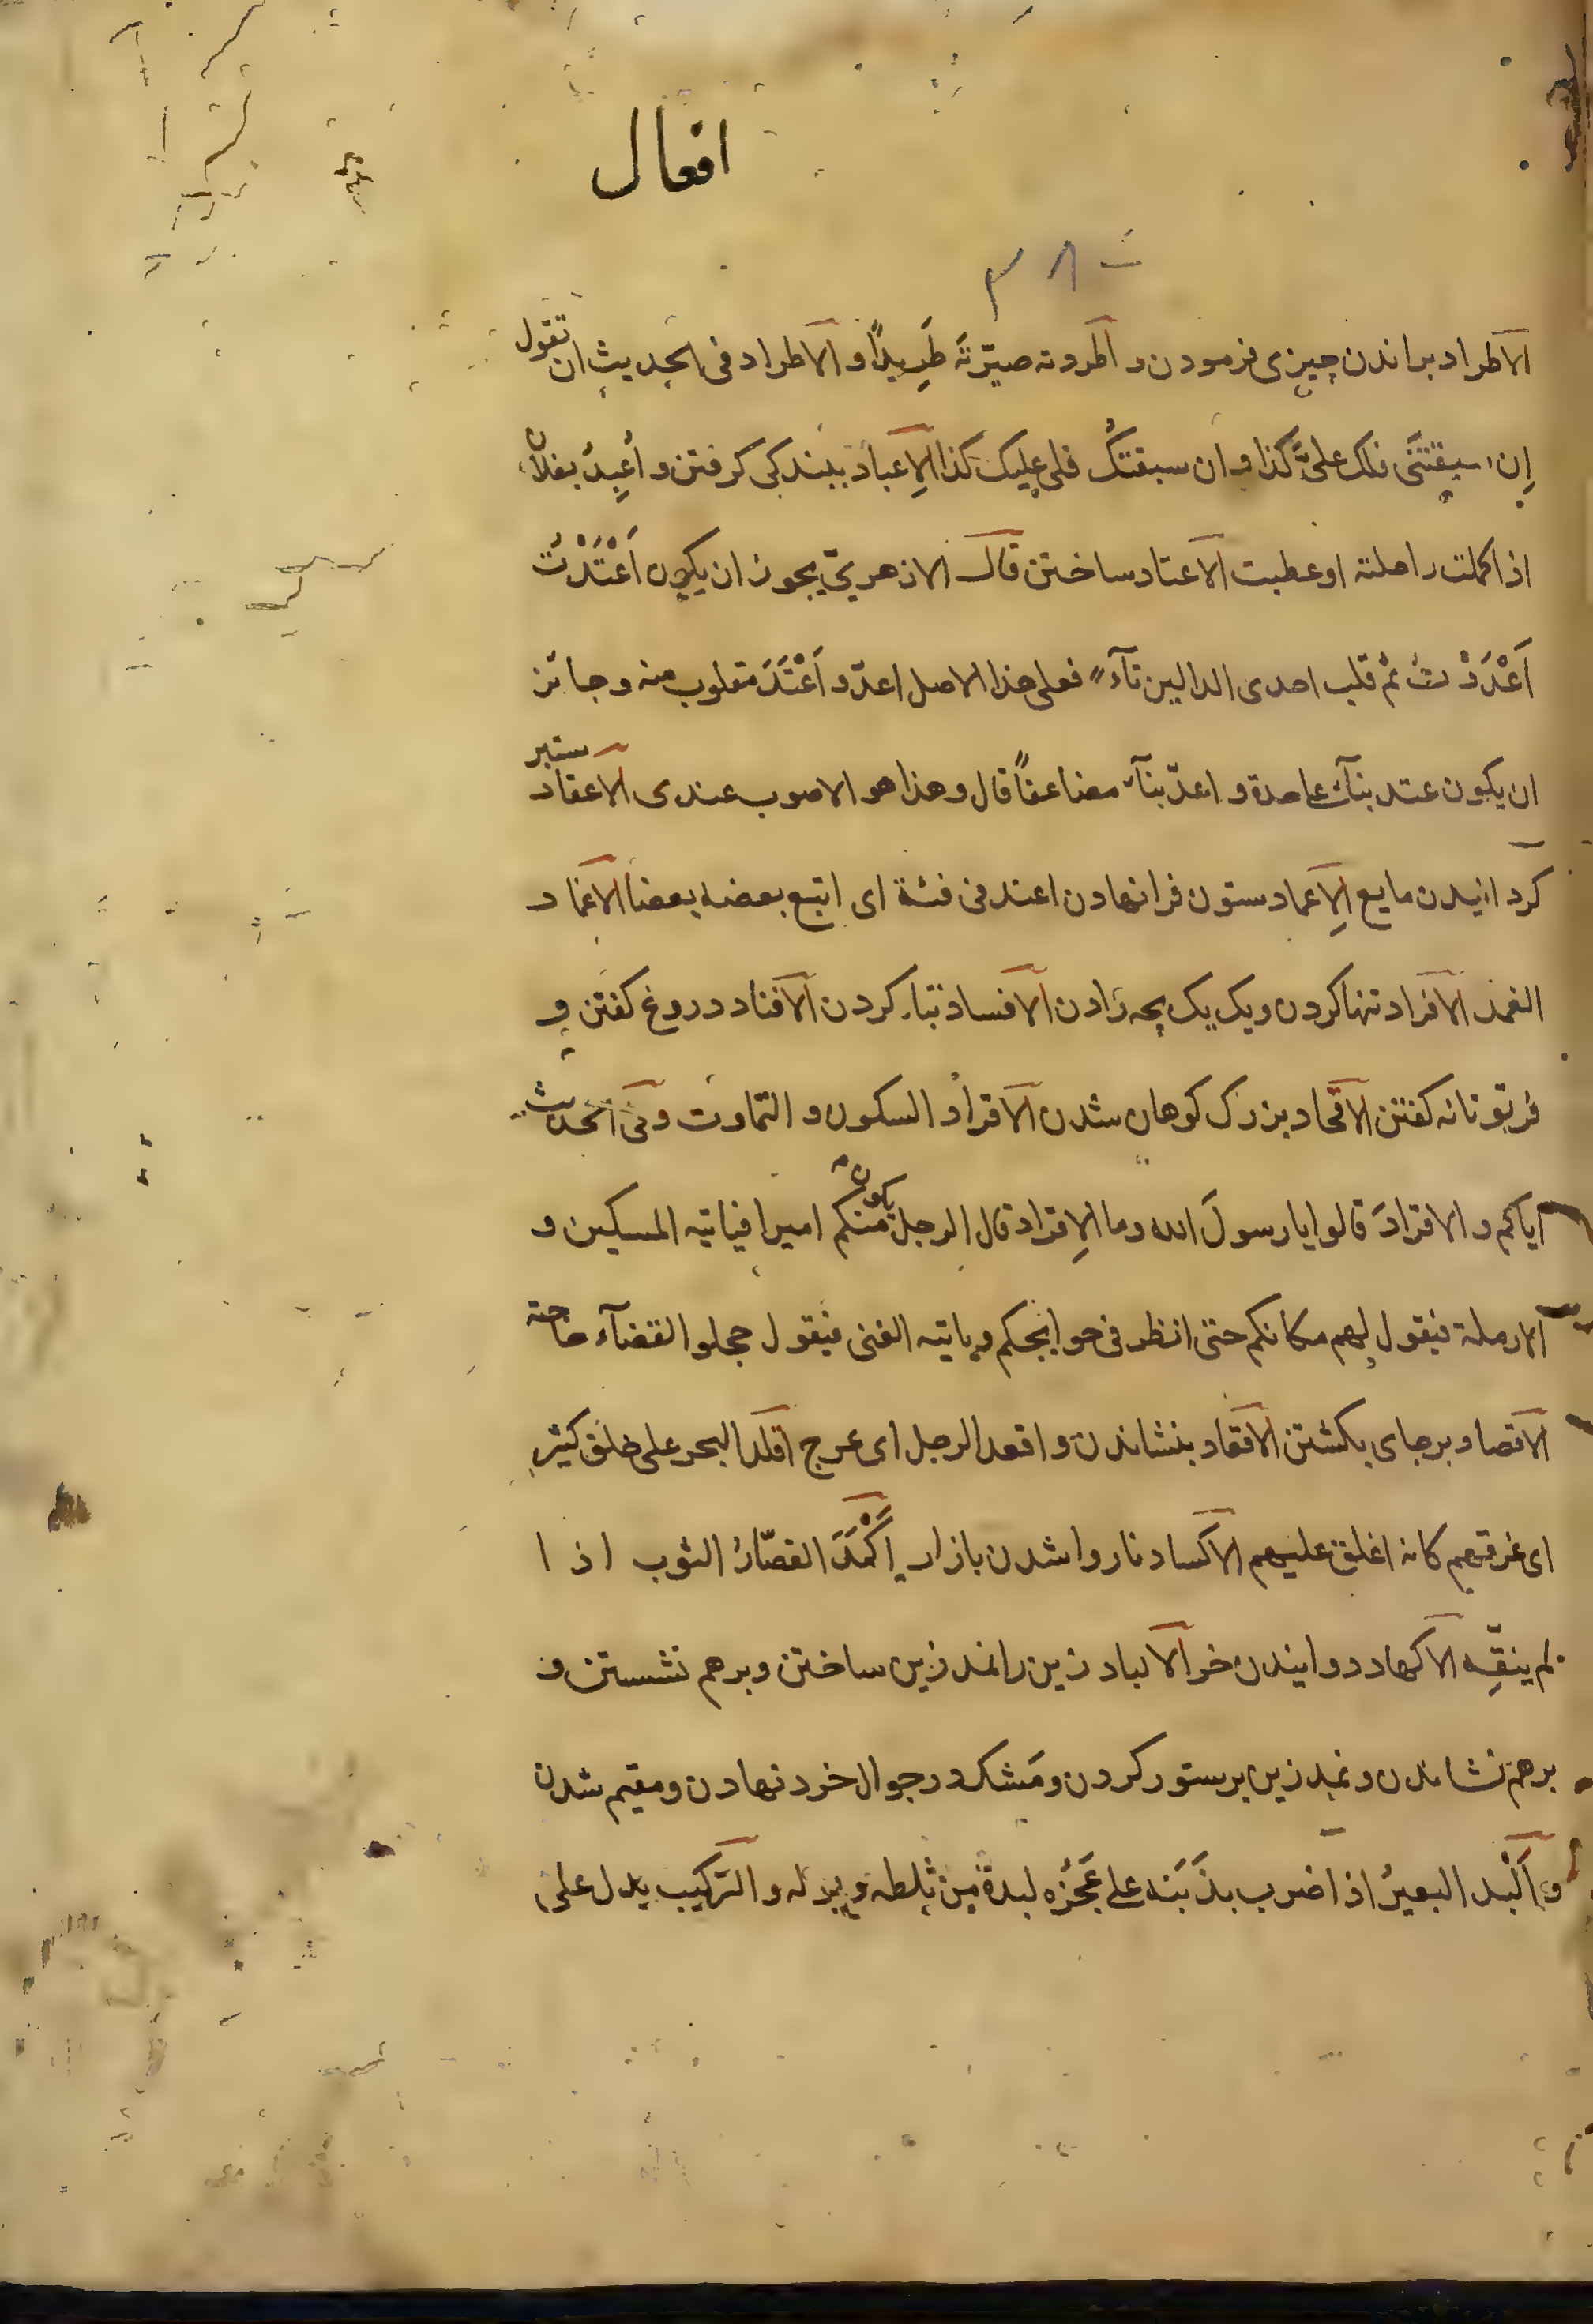 افعال
٣٨
الاطراد براندن چیزی فرمودن و اطردته صیّرتَه طَرِیدًا و الاطراد فی الحدیث ان تقول
اِن سبقتَنی فلک علیَّ کذا و ان سبقتُک فلی علیک کذا الاِعباد ببندکی کرفتن و اُعبِدَ بفلان
اذا کلت راحلته او عطبت الاعتاد ساختن قال الازهریّ یجوز ان یکون اَعْتَدْتُ
اَعْدَدْتُ ثم قلب احدی الدالین تآءً فعلی هذا الاصل اعدّ و اَعْتَدَ مقلوب منه و جائز
ان یکون عتد بنآء علی حدة و اعدّ بنآء مضاعفًا قال و هذا هو الاصوب عندی الاعقاد ستبر
کردانیدن مایع الاِعماد ستون فرا نهادن اعند فی قیئه ای اتبع بعضه بعضا الاغماد
الغمد الافراد تنها کردن و یک یک بچه زادن الافساد تباه کردن الافناد دروغ کفتن و
فرتوتانه کفتن الاقحاد بزرک کوهان شدن الاقراد السکون و التماوت و فی الحدیث
ایاکم و الاقرادَ قالوا یا رسولَ الله و ما الاِقراد قال الرجل یکون منکم امیرا فیاتیه المسکین و
الارملة فیقول لهم مکانکم حتی انظر فی حوایجکم و یاتیه الغنی فیقول عجلوا القضآء حاجته
الاقصاد برجای بکشتن الاقعاد بنشاندن و اقعد الرجل ای عرج اقلد البحر علی خلق کثیر
ای غرقهم کانه اغلق علیهم الاکساد ناروا شدن بازار اَکْمَدَ القصّارُ الثوب اذا
لم ینقّه الاکهاد دوانیدن خر الالباد زین را نمد زین ساختن و برهم نشستن و
برهم نشاندن و نمد زین بر ستور کردن و مَشک در جوال خرد نهادن و مقیم شدن
و اَلْبد البعیرُ اذا ضرب بذَنَبَه علی عَجُزِه لبدة من ثلطه و بوله و الترکیب یدل علی